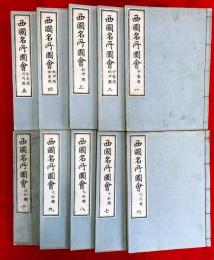 西國名所圖會 一
西國名所圖會 二
西國名所圖會 三
西國名所圖會 四
西國名所圖會 五
西國名所圖會 六
西國名所圖會 七
西國名所圖會 大和國 八
西國名所圖會 大和國 九
西國名所圖會 大和國 十